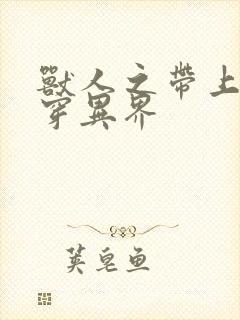 獸人之帶上
穿異界
荚皂鱼